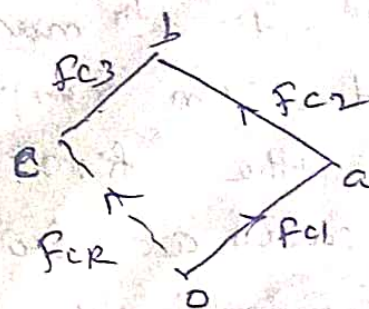 b
Fc3
Fc2
c
a
Fc1
FcR
o